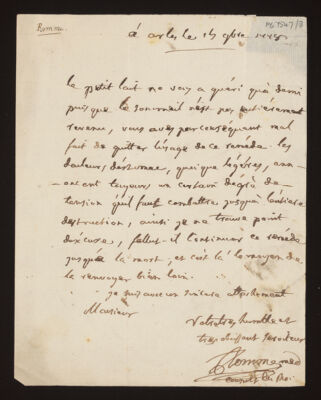 Pomme.
à arles le 15 9bre
le petit lait ne vous a guéri qu'à demi
puisque le sommeil n'est pas entièrement
revenu, vous avés par conséquent mal
fait de quitter l'usage de ce remède. les
douleurs d'estomac, quoique légères, ann-
oncent toujours un certain dégré de
tension qu'il faut combattre jusqu'à l'entière
destruction, ainsi je ne trouve point
d'éxcuse, fallut-il continuer ce remède
jusqu'à la mort, et c'est là le moyen de
la renvoyer bien loin.
je suis avec un sincère attachement
Monsieur
Votre très humble et
très obéissant serviteur
Pomme med
consult du Roi